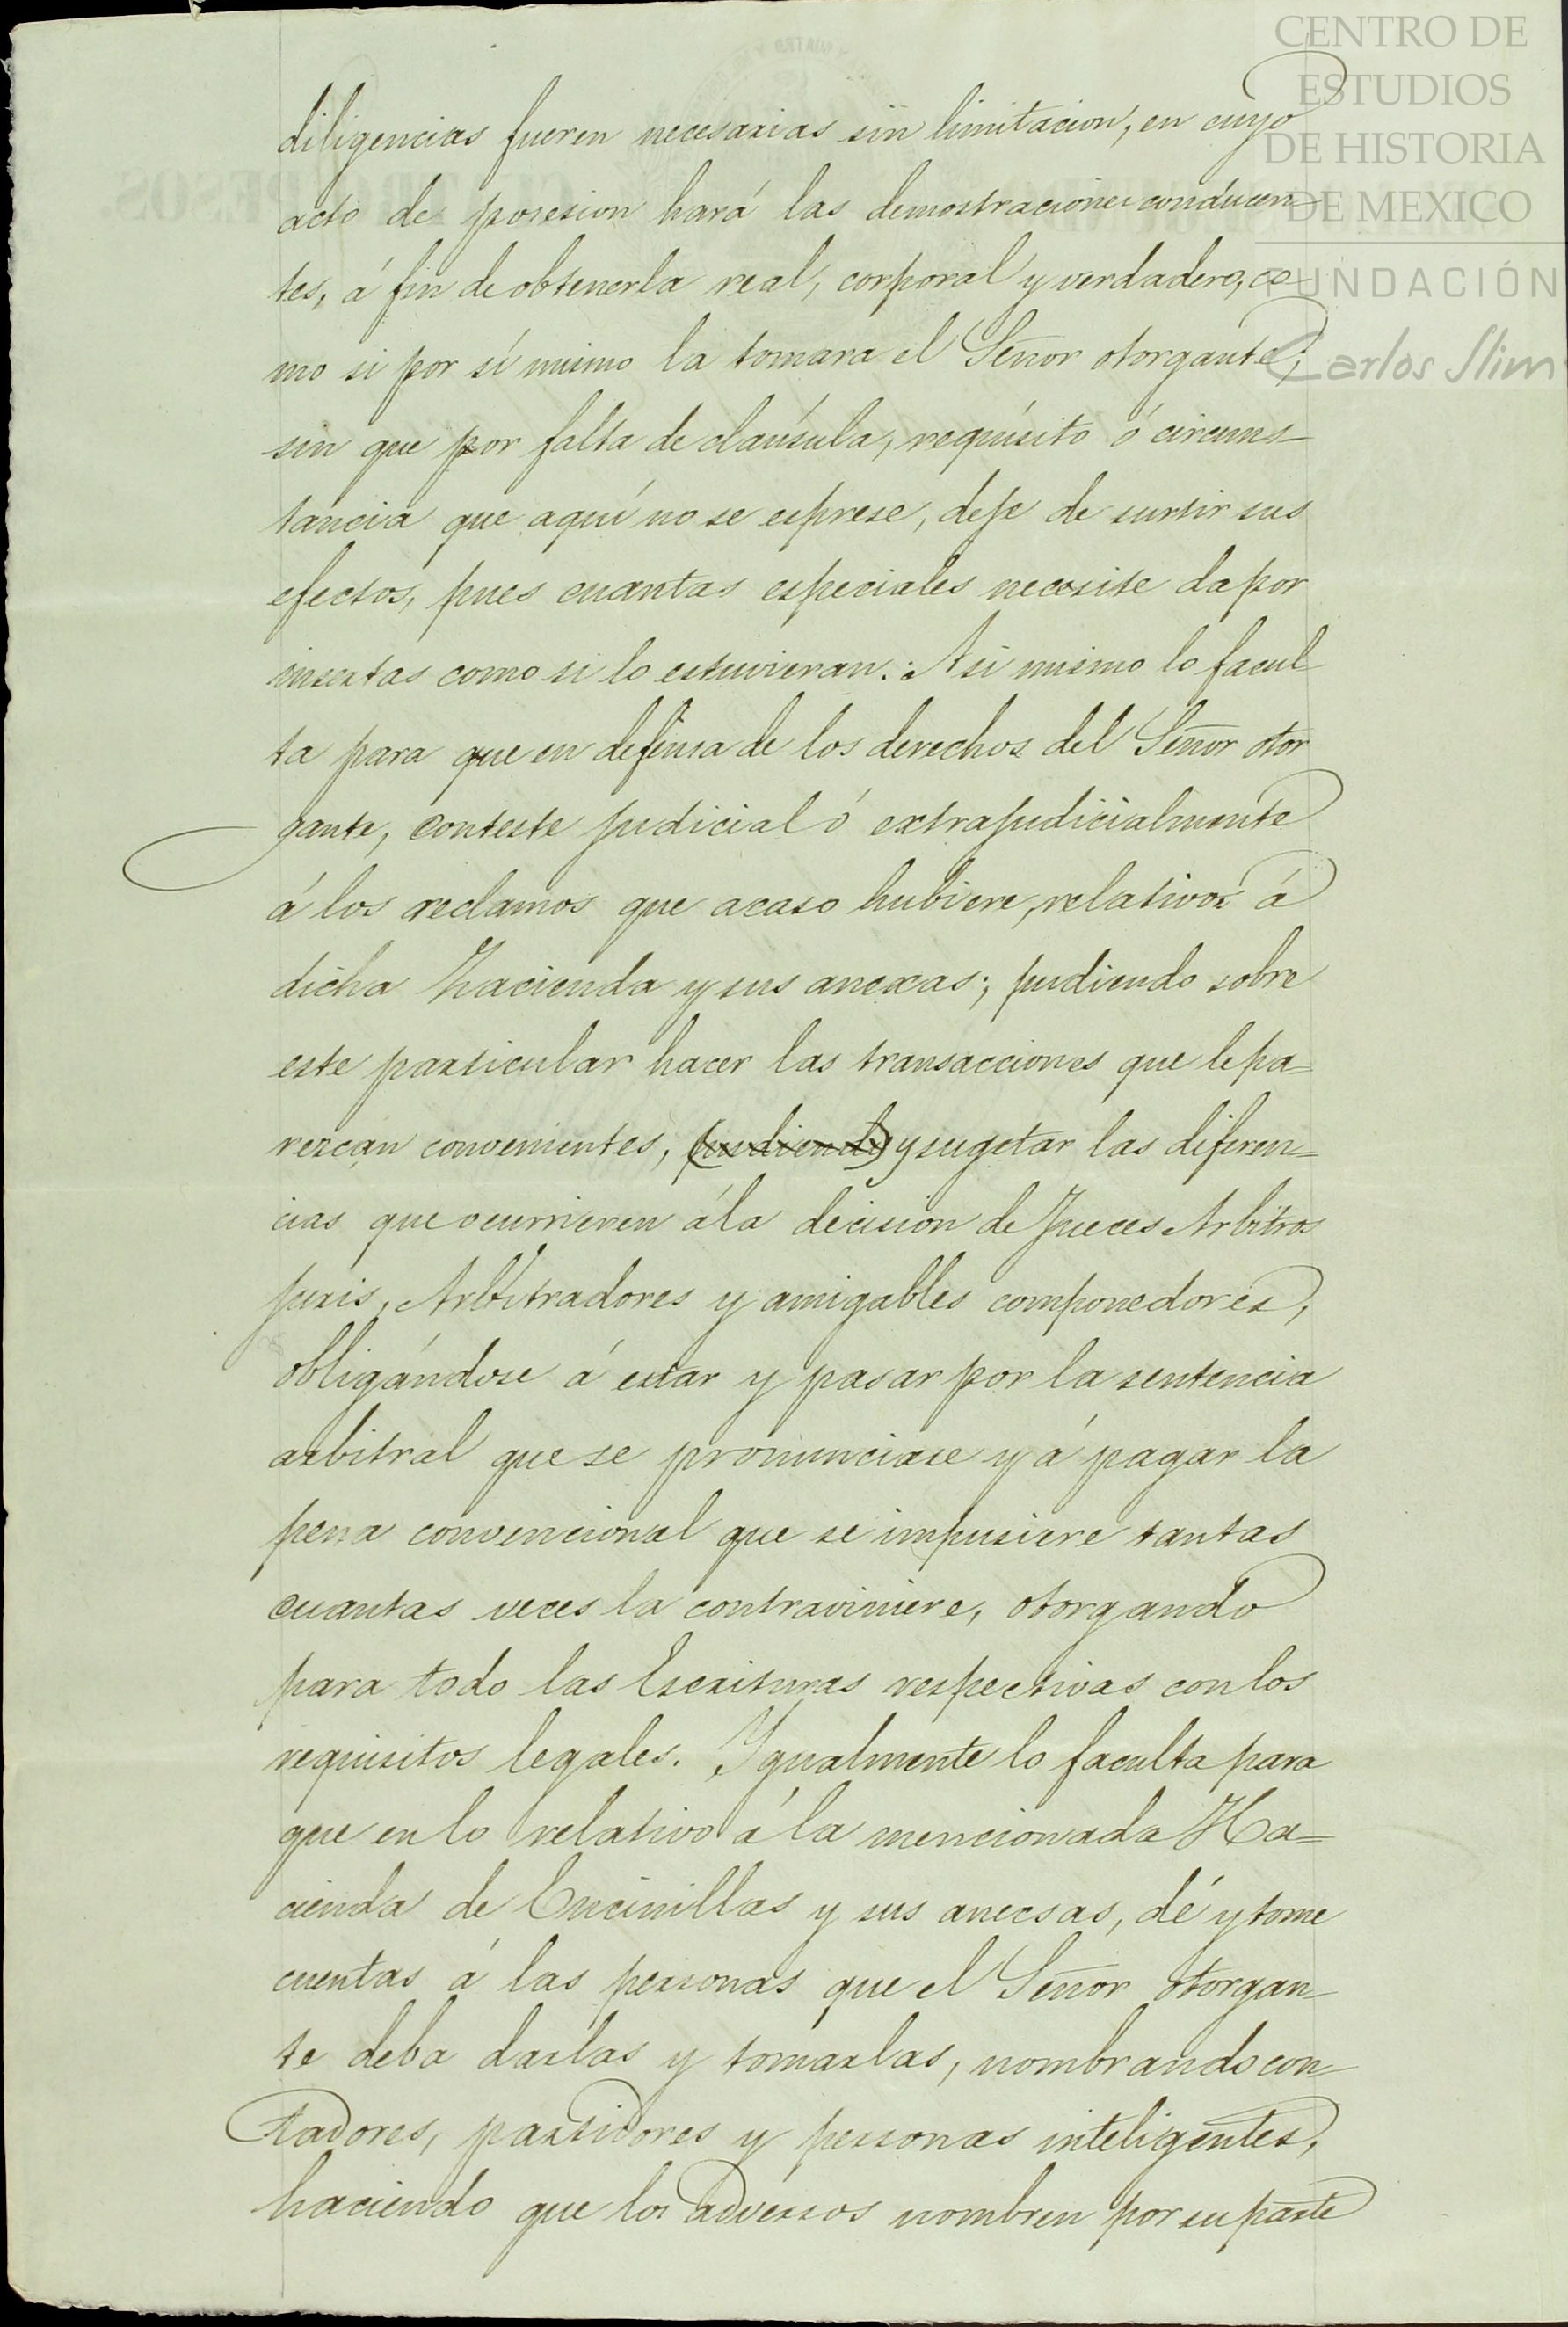 CENTRO DE
ESTUDIOS
DE HISTORIA
DE MEXICO
FUNDACIÓN
Carlos Slim
diligencias fueren necesarias sin limitacion, en cuyo
acto de posesion hará las demostraciones conducen-
tes, á fin de obtenerla real, corporal y verdadera, co-
mo si por sí mismo la tomara el Señor otorgante;
sin que por falta de claúsula, requísito ó circuns-
tancia que aquí no se esprese, deje de surtir sus
efectos, pues cuantas especiales necesite da por
insertas como si lo estuvieran. Asi mismo lo facul-
ta para que en defensa de los derechos del Señor otor
gante, conteste judicial ó extrajudicialmente
á los reclamos que acaso hubiere, relativos á
dicha Hacienda y sus anexas; pudiendo sobre
este particular hacer las transacciones que le pa=
rezcan convenientes, (pudiendo) y sugetar las diferen=
cias que ocurrieren á la decision de Jueces Arbitros
juris, Arbitradores y amigables componedores,
obligándose á estar y pasar por la sentencia
arbitral que se pronunciase y á pagar la
pena convencional que se impusiere tantas
cuantas veces la contraviniere, otorgando
para todo las Escrituras respectivas con los
requisitos legales. Ygualmente lo faculta para
que en lo relativo á la mencionada Ha=
cienda de Encinillas y sus anecsas, dé y tome
cuentas á las personas que el Señor otorgan-
te deba darlas y tomarlas, nombrando con-
tadores, partidores y personas inteligentes,
haciendo que los adversos nombren por su parte